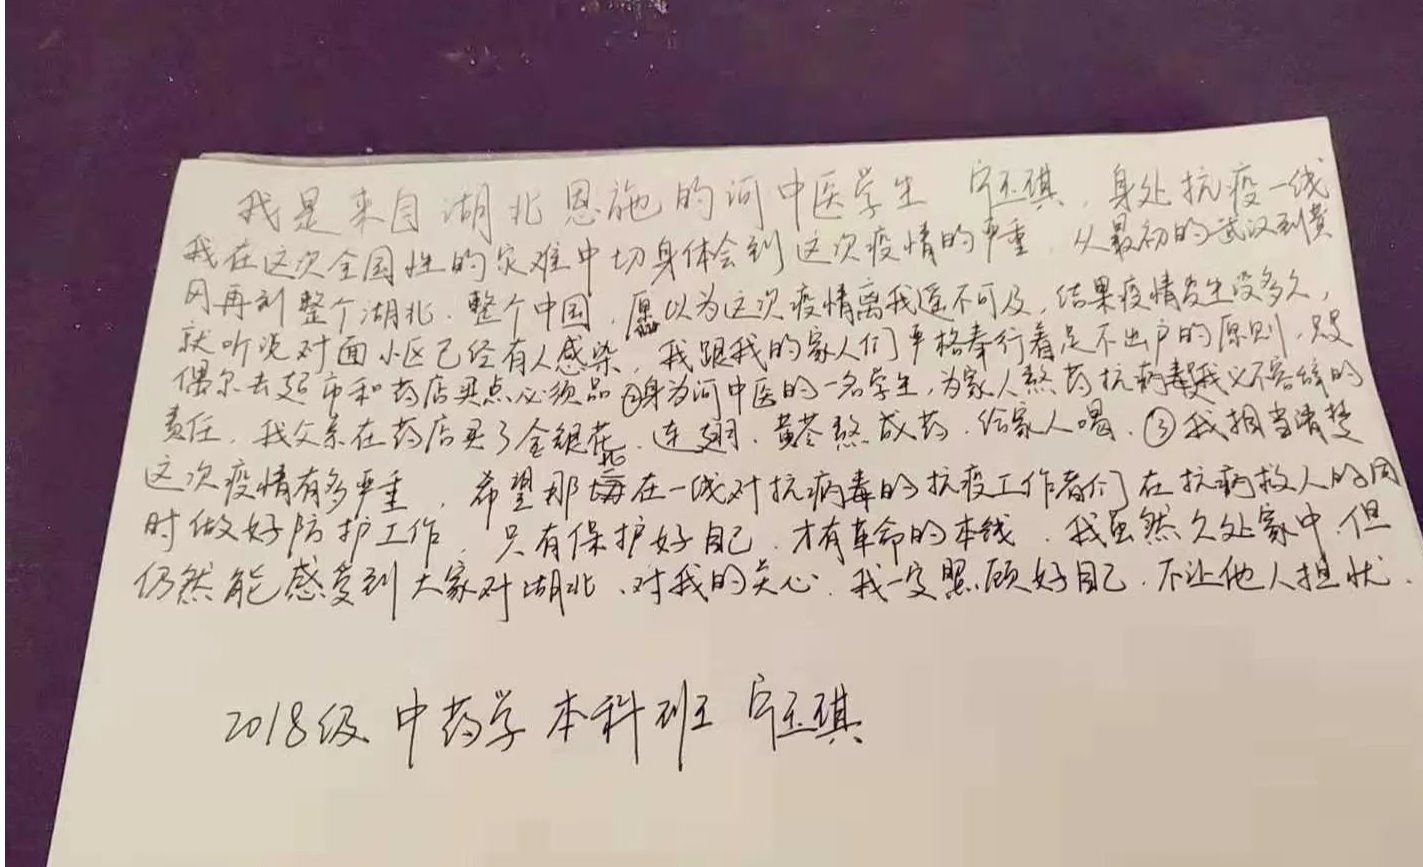 我是来自湖北恩施的河中医学生 宁玉琪，身处抗疫一线
我在这次全国性的灾难中切身体会到这次疫情的严重，从最初的武汉到黄
冈再到整个湖北、整个中国，原以为这次疫情离我遥不可及，结果疫情发生没多久，
就听说对面小区已经有人感染，我跟我的家人们严格奉行着足不出户的原则，只是
偶尔去超市和药店买点必须品②身为河中医的一名学生，为家人熬药抗病毒是我义不容辞的
责任，我父亲在药店买了金银花、连翘、黄芩熬成药，给家人喝，③我相当清楚
这次疫情有多严重，希望那些在一线对抗病毒的抗疫工作者们在抗病救人的同
时做好防护工作，只有保护好自己，才有革命的本钱，我虽然久处家中，但
仍然能感受到大家对湖北、对我的关心，我一定照顾好自己，不让他人担忧．
2018级 中药学本科班 宁玉琪